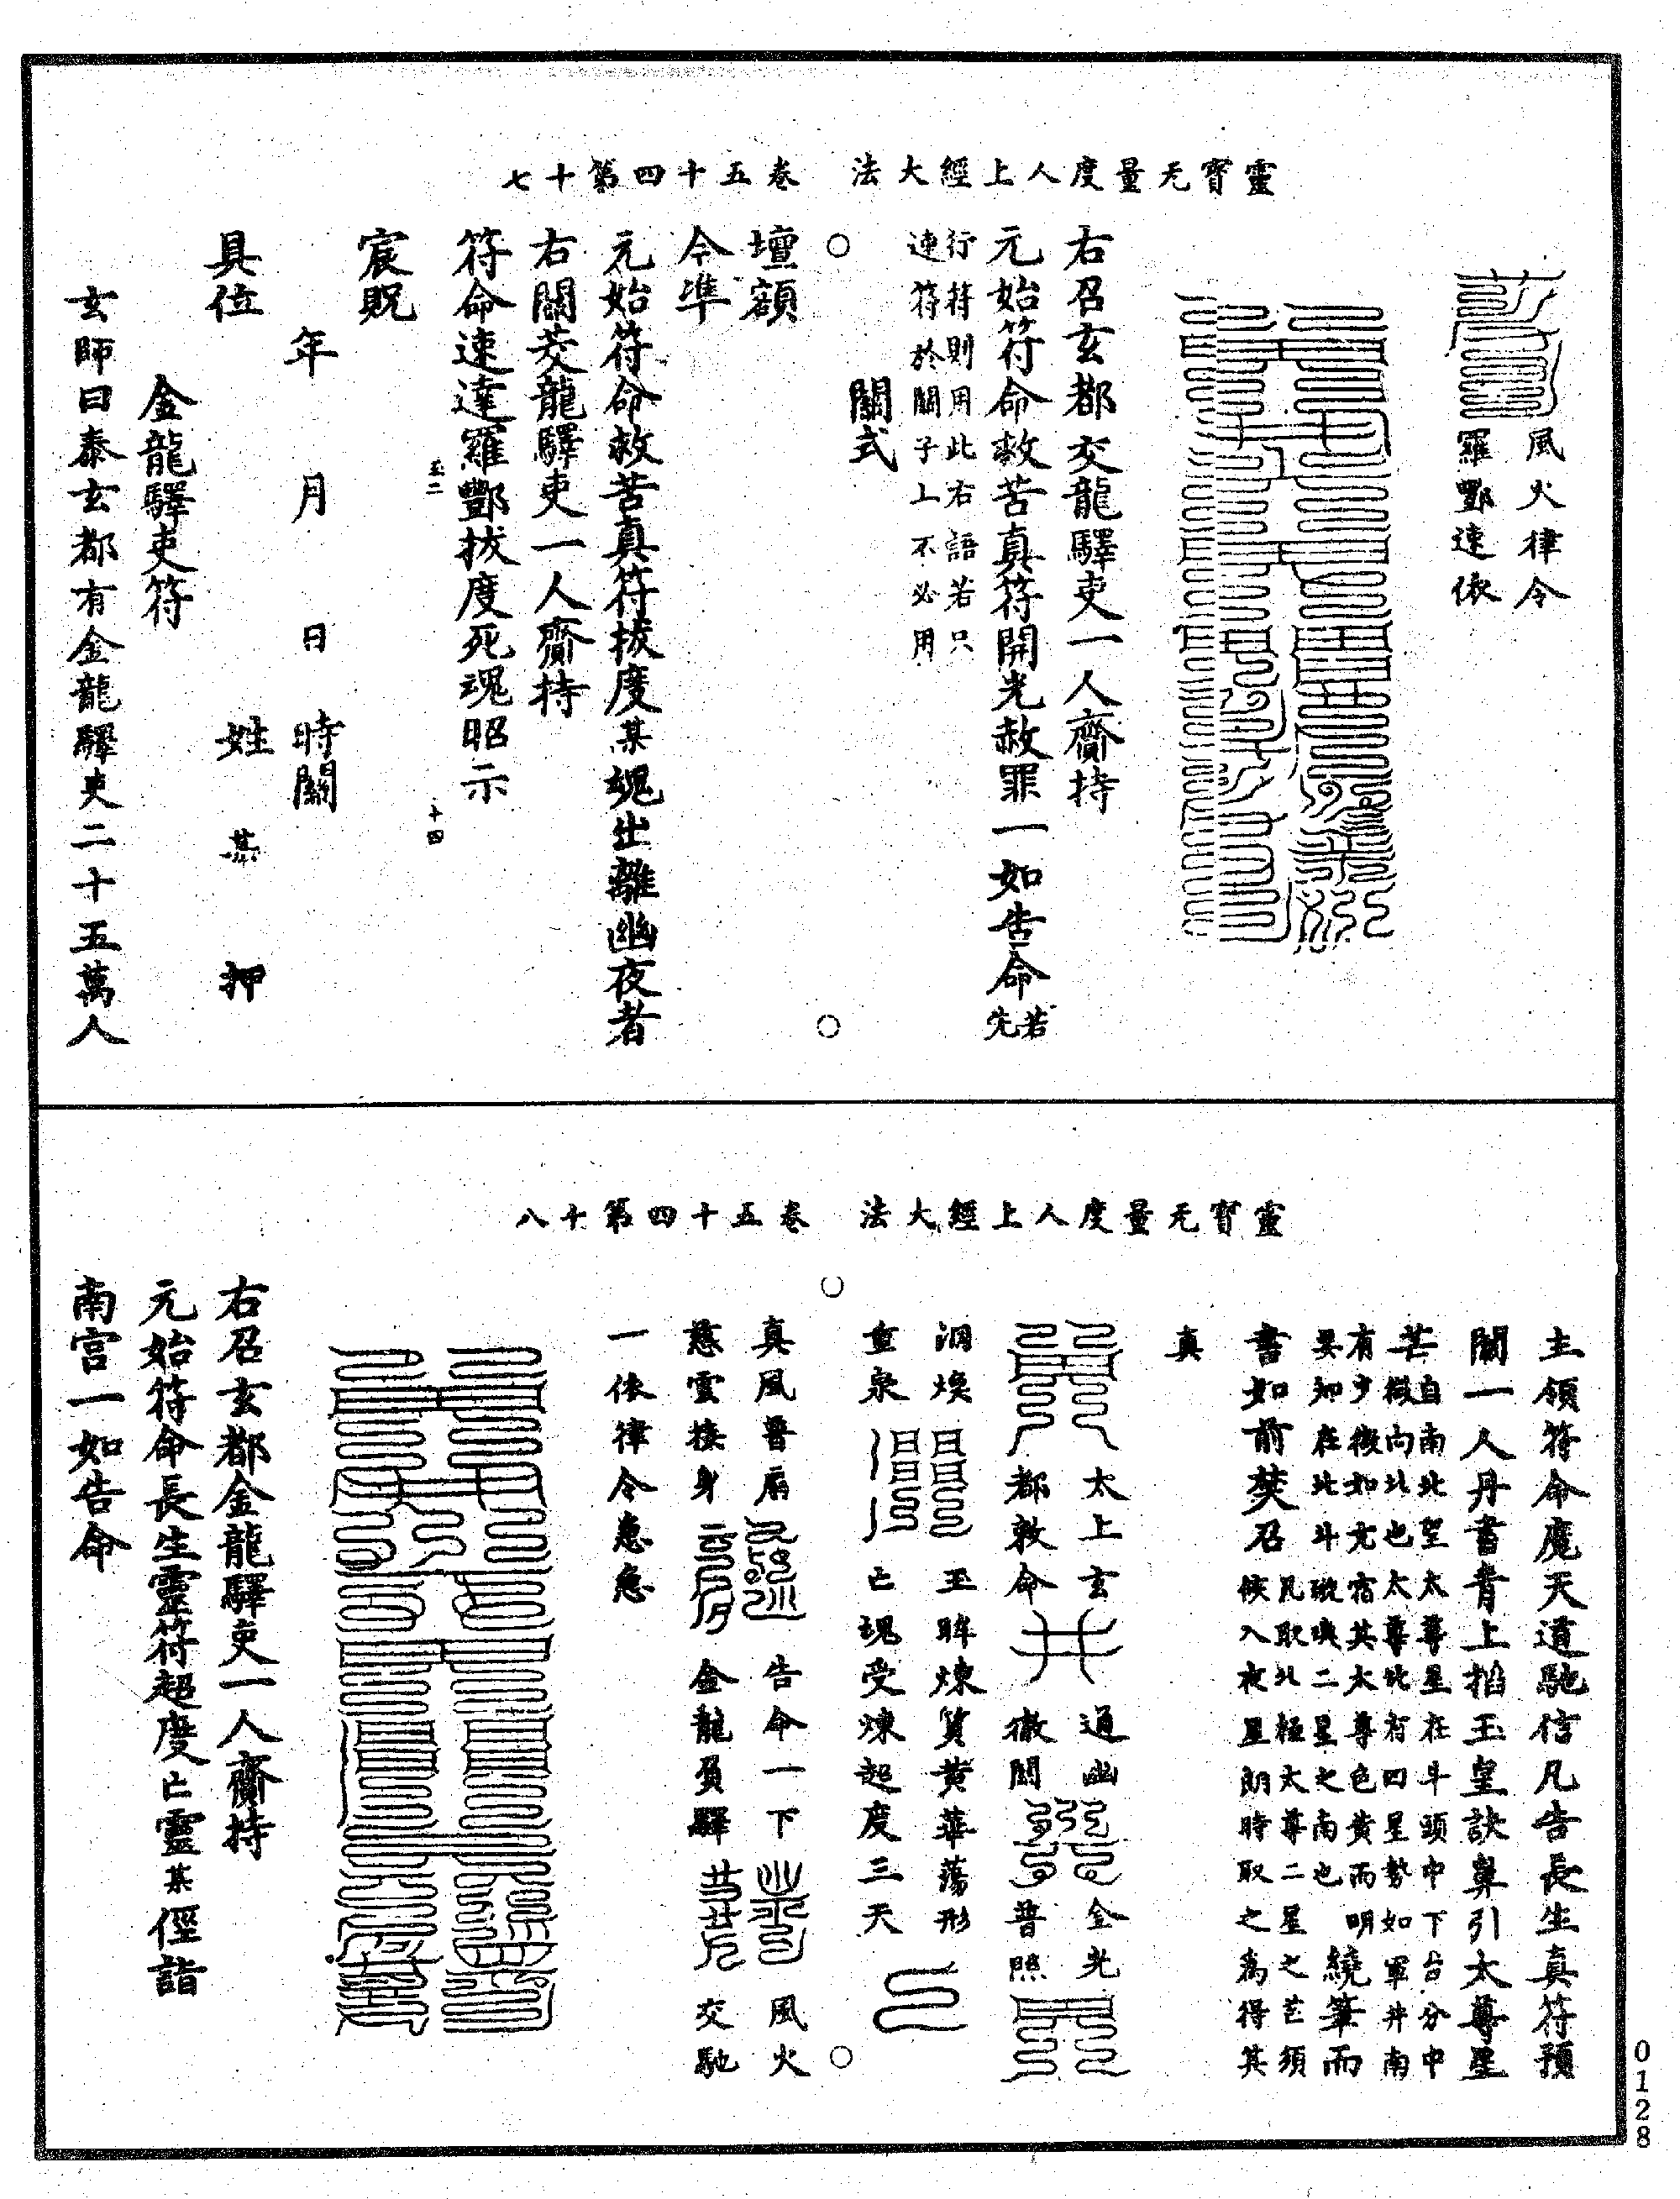 靈寶无量度人上經大法　卷五十四第十七
風火律令
羅酆速依
右召玄都交龍驛吏一人齎持
元始符命救苦真符開光赦罪一如告命若先
行符則用此右語若只
連符於關子上不必用
關式
壇額
今準
元始符命救苦真符拔度某魂出離幽夜者
右關茭龍驛吏一人齎持
符命速達羅酆拔度死魂昭示
十四
宸貺
年　月　日　時關
具位　姓　某　押
金龍驛吏符
玄師曰泰玄都有金龍驛吏二十五萬人
靈寶无量度人上經大法　卷五十四第十八
主領符命魔天道馳信凡告長生真符預
關一人丹書青上掐玉皇訣鼻引太尊星
芒自南北望太尊星在斗頭中下台分中
微向北也太尊北有四星勢如軍井南
有少微如亢宿其太尊色黃而明
要知在北斗璇璣二星之南也
繞筆而
書如前焚召
凡取北極太尊二星之芒須
候入夜星朗時取之為得其
真
太上玄
都敕命
通幽
徹開
金光
普照
洞煥
重泉
玉眸煉質黃華蕩形
亡魂受煉超度三天
真風普扇
慈雲接身
告命一下
金龍負驛
風火
交馳
一依律令急急
右召玄都金龍驛吏一人齎持
元始符命長生靈符超度亡靈某徑詣
南宮一如告命
0128